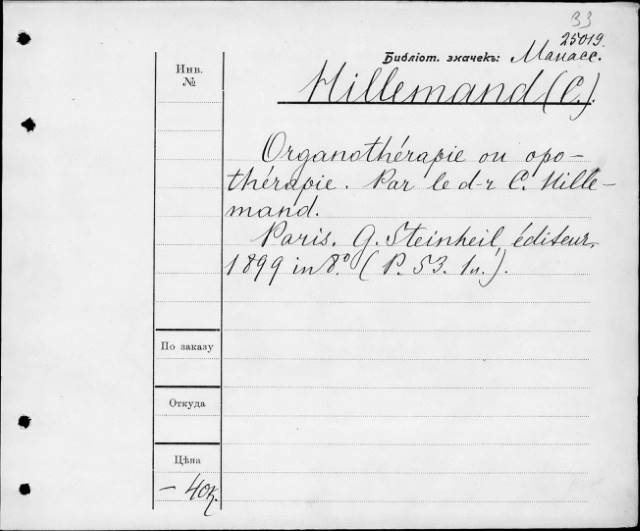 33
25019.
Библіот. значекъ: Манасс.
Инв.
№
Hillemand (C.).
Organothérapie ou opo-
thérapie. Par le d-r C. Hille-
mand.
Paris. G. Steinheil, éditeur,
1899 in 8.° (P. 53. 1 н.).
По заказу
Откуда
Цѣна
— 40 к.